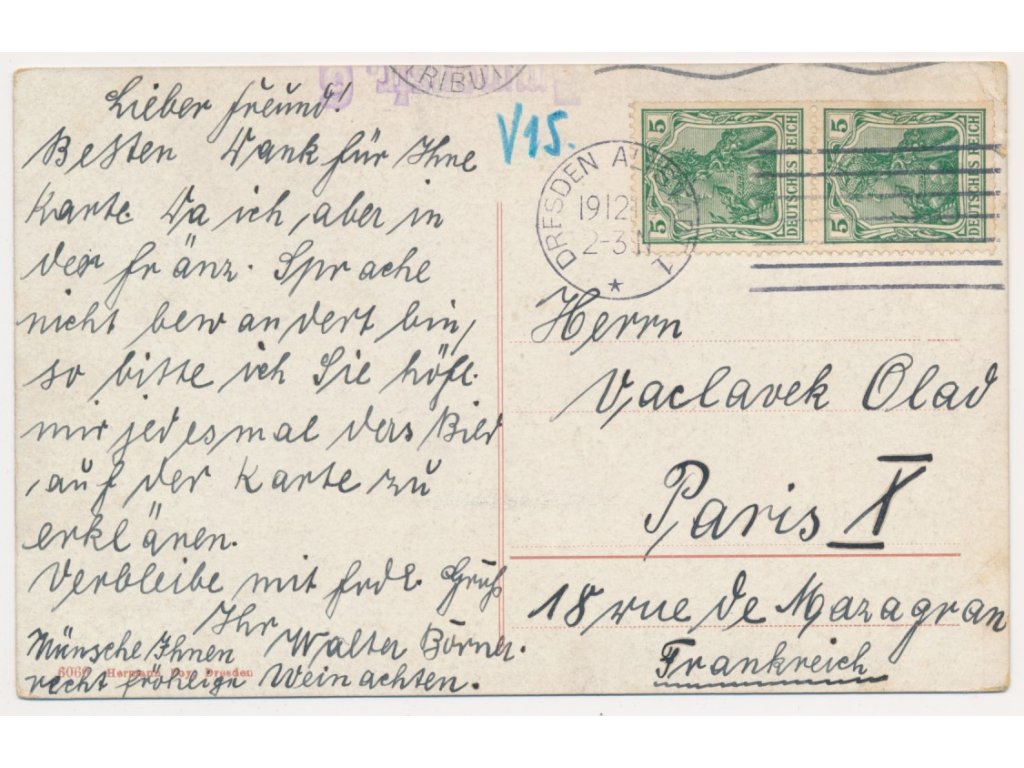 Lieber Freund!
Besten Dank für Ihne
Karte. Da ich, aber in
der fränz. Sprache
nicht bewandert bin,
so bitte ich Sie höfl.
mir jedesmal das Bild
auf der Karte zu
erklänen.
Verbleibe mit frdl. Gruß
Ihr Walter Börner.
Wünsche Ihnen
recht fröhliche Weinachten.
6069 Hermann Dresden
RIBU
V15.
DRESDEN 1
1912
2-3 N
5 DEUTSCHES REICH
5 DEUTSCHES REICH
Herrn
Vaclavek Olad
Paris X
18 rue de Mazagran
Frankreich